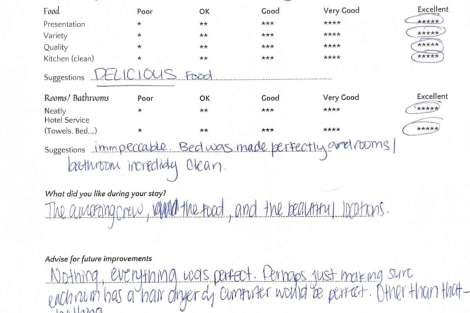 Food Poor OK Good Very Good Excellent
Presentation * ** *** **** *****
Variety * ** *** **** *****
Quality * ** *** **** *****
Kitchen (clean) * ** *** **** *****
Suggestions DELICIOUS Food
Rooms/ Bathrooms Poor OK Good Very Good Excellent
Neatly * ** *** **** *****
Hotel Service
(Towels, Bed...) * ** *** **** *****
Suggestions immpeccable. Bed was made perfectly and rooms/
bathroom incredidy clean.
What did you like during your stay?
The amazing crew, the food, and the beautiful locations.
Advise for future improvements
Nothing, everything was perfect. Perhaps just making sure
each room has a hair dryer would be perfect. Other than that-